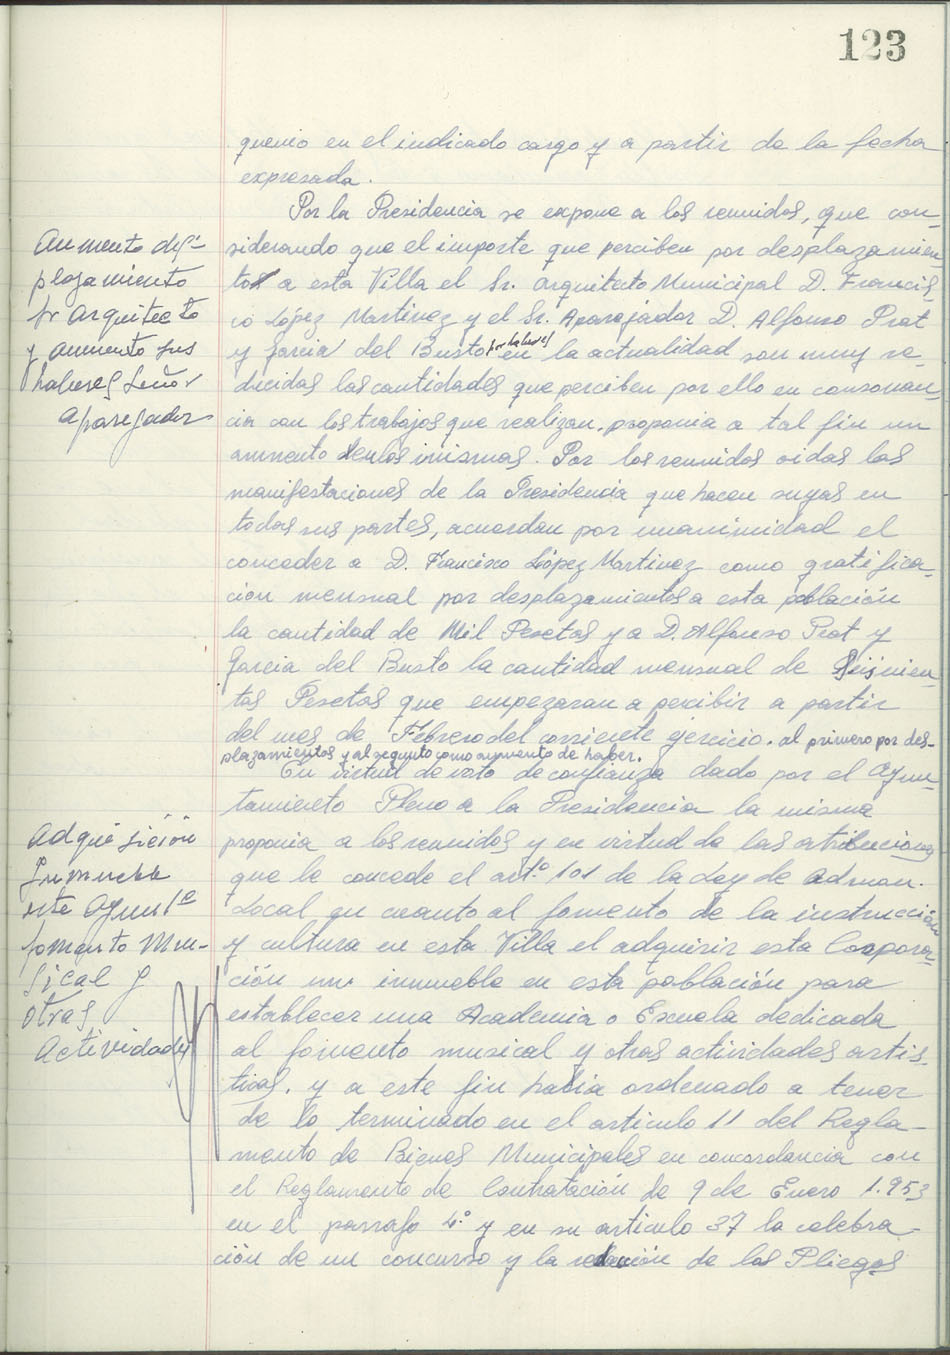 123
quenio en el indicado cargo y a partir de la fecha
expresada.
Por la Presidencia se expone a los reunidos, que con-
siderando que el importe que perciben por desplazamien-
tos a esta Villa el Sr. Arquitecto Municipal D. Francis-
co López Martinez y el Sr. Aparejador D. Alfonso Prat
y Garcia del Busto por haberes en la actualidad son muy re-
ducidas las cantidades que perciben por ello en consonan-
cia con los trabajos que realizan. proponia a tal fin un
aumento de las mismas. Por los reunidos oidas las
manifestaciones de la Presidencia que hacen suyas en
todas sus partes, acuerdan por unanimidad el
conceder a D. Francisco López Martinez como gratifica-
ción mensual por desplazamientos a esta población
la cantidad de Mil Pesetas y a D. Alfonso Prat y
Garcia del Busto la cantidad mensual de Seiscien-
tas Pesetas que empezaran a percibir a partir
del mes de Febrero del corriente ejercicio. al primero por des-
plazamientos y al segundo como aumento de haber.
En virtud de voto de confianza dado por el Ayun-
tamiento Pleno a la Presidencia la misma
proponia a los reunidos y en virtud de las atribuciones
que le concede el artº 101 de la Ley de Admon.
Local en cuanto al fomento de la instrucción
y cultura en esta Villa el adquirir esta Corpora-
ción un inmueble en esta población para
establecer una Academia o Escuela dedicada
al fomento musical y otras actividades artis-
ticas. y a este fin habia ordenado a tenor
de lo terminado en el articulo 11 del Regla-
mento de Bienes Municipales en concordancia con
el Reglamento de Contratación de 9 de Enero 1.953
en el parrafo 4º y en su articulo 37 la celebra-
ción de un concurso y la redacción de los Pliegos
Aumento des-
plazamiento
Sr Arquitecto
y aumento sus
haberes Señor
Aparejador
Adquisición
Inmueble
este Ayunte
fomento Mu-
sical y
otras
Actividades